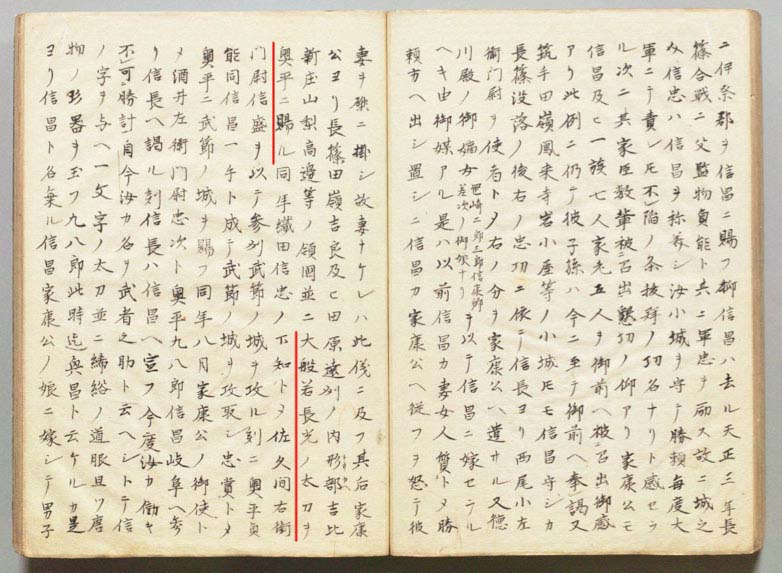 ニ伊奈郡ヲ信昌ニ賜フ抑信昌ハ去ル天正三年長
篠合戦ニ父監物貞能ト共ニ軍忠ヲ励ス故ニ城之
ミ信忠ハ信昌ヲ称美シ汝小城ヲ守テ勝頼毎度大
軍ニテ責シ氏不陥ノ条抜群ノ功名ナリト感セラ
ル次ニ其家臣数輩被召出懇切ノ仰アリ家康公モ
信昌及ヒ一族七人家老五人ヲ御前ヘ被召出御感
アリ此例ニ仍テ彼子孫ハ今ニ至テ御前ヘ奉謁又
筑手田嶺鳳来寺岩小屋等ノ小城氏モ信昌守シカ
長篠没落ノ後右ノ忠功ニ依テ信長ヨリ西尾小左
衛門尉ヲ使者トメ右ノ分ヲ家康公ヘ遣サル又徳
川殿ノ御嫡女岡崎二郎三郎信康卿差次ノ御娘ナリヲ以テ信昌ニ嫁セラル
ヘキ由御媒アル是ハ以前信昌カ妻女人質トメ勝
頼方ヘ出シ置シニ信昌カ家康公ヘ従フヲ怒テ彼
妻ヲ磔ニ掛シ故妻ナケレハ此儀ニ及フ其后家康
公ヨリ長篠田嶺吉良及ヒ田原遠州ノ内形部吉比
新庄山梨高邊等ノ領國並ニ大般若長光ノ太刀ヲ
奥平ニ賜ル同年織田信忠ノ下知トメ佐久間右衛
門尉信盛ヲ以テ参州武節ノ城ヲ攻ル刻ニ奥平貞
能同信昌一手ト成テ武節ノ城ヲ攻取シ忠賞トメ
奥平ニ武節ノ城ヲ賜フ同年八月家康公ノ御使ト
メ酒井左衛門尉忠次ト奥平九八郎信昌岐阜ヘ参
リ信長ヘ謁ル刻信長ハ信昌ヘ宣フ今度汝カ働キ
不可勝計自今汝カ名ヲ武者之助ト云ヘシトテ信
ノ字ヲ与ヘ一文字ノ太刀並ニ締綌ノ道服且ツ唐
物ノ珎器ヲ玉フ九八郎此時迄奥昌ト云ケルカ是
ヨリ信昌ト名乗ル信昌家康公ノ娘ニ嫁シテ男子